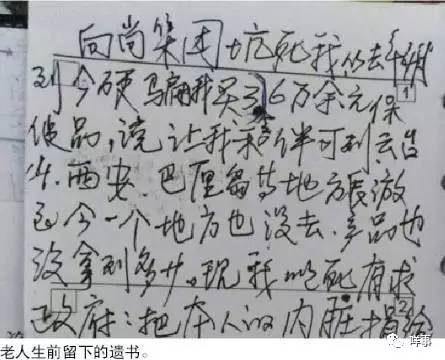 向尚集团坑死我的去年
到今硬骗我买了6万余元保
健品，说让我和老伴可到云台
山、西安、巴厘岛等地方旅游
至今一个地方也没去，产品也
没拿到多少。现我以死有求
政府：把本人的内脏捐给
1
2
老人生前留下的遗书。